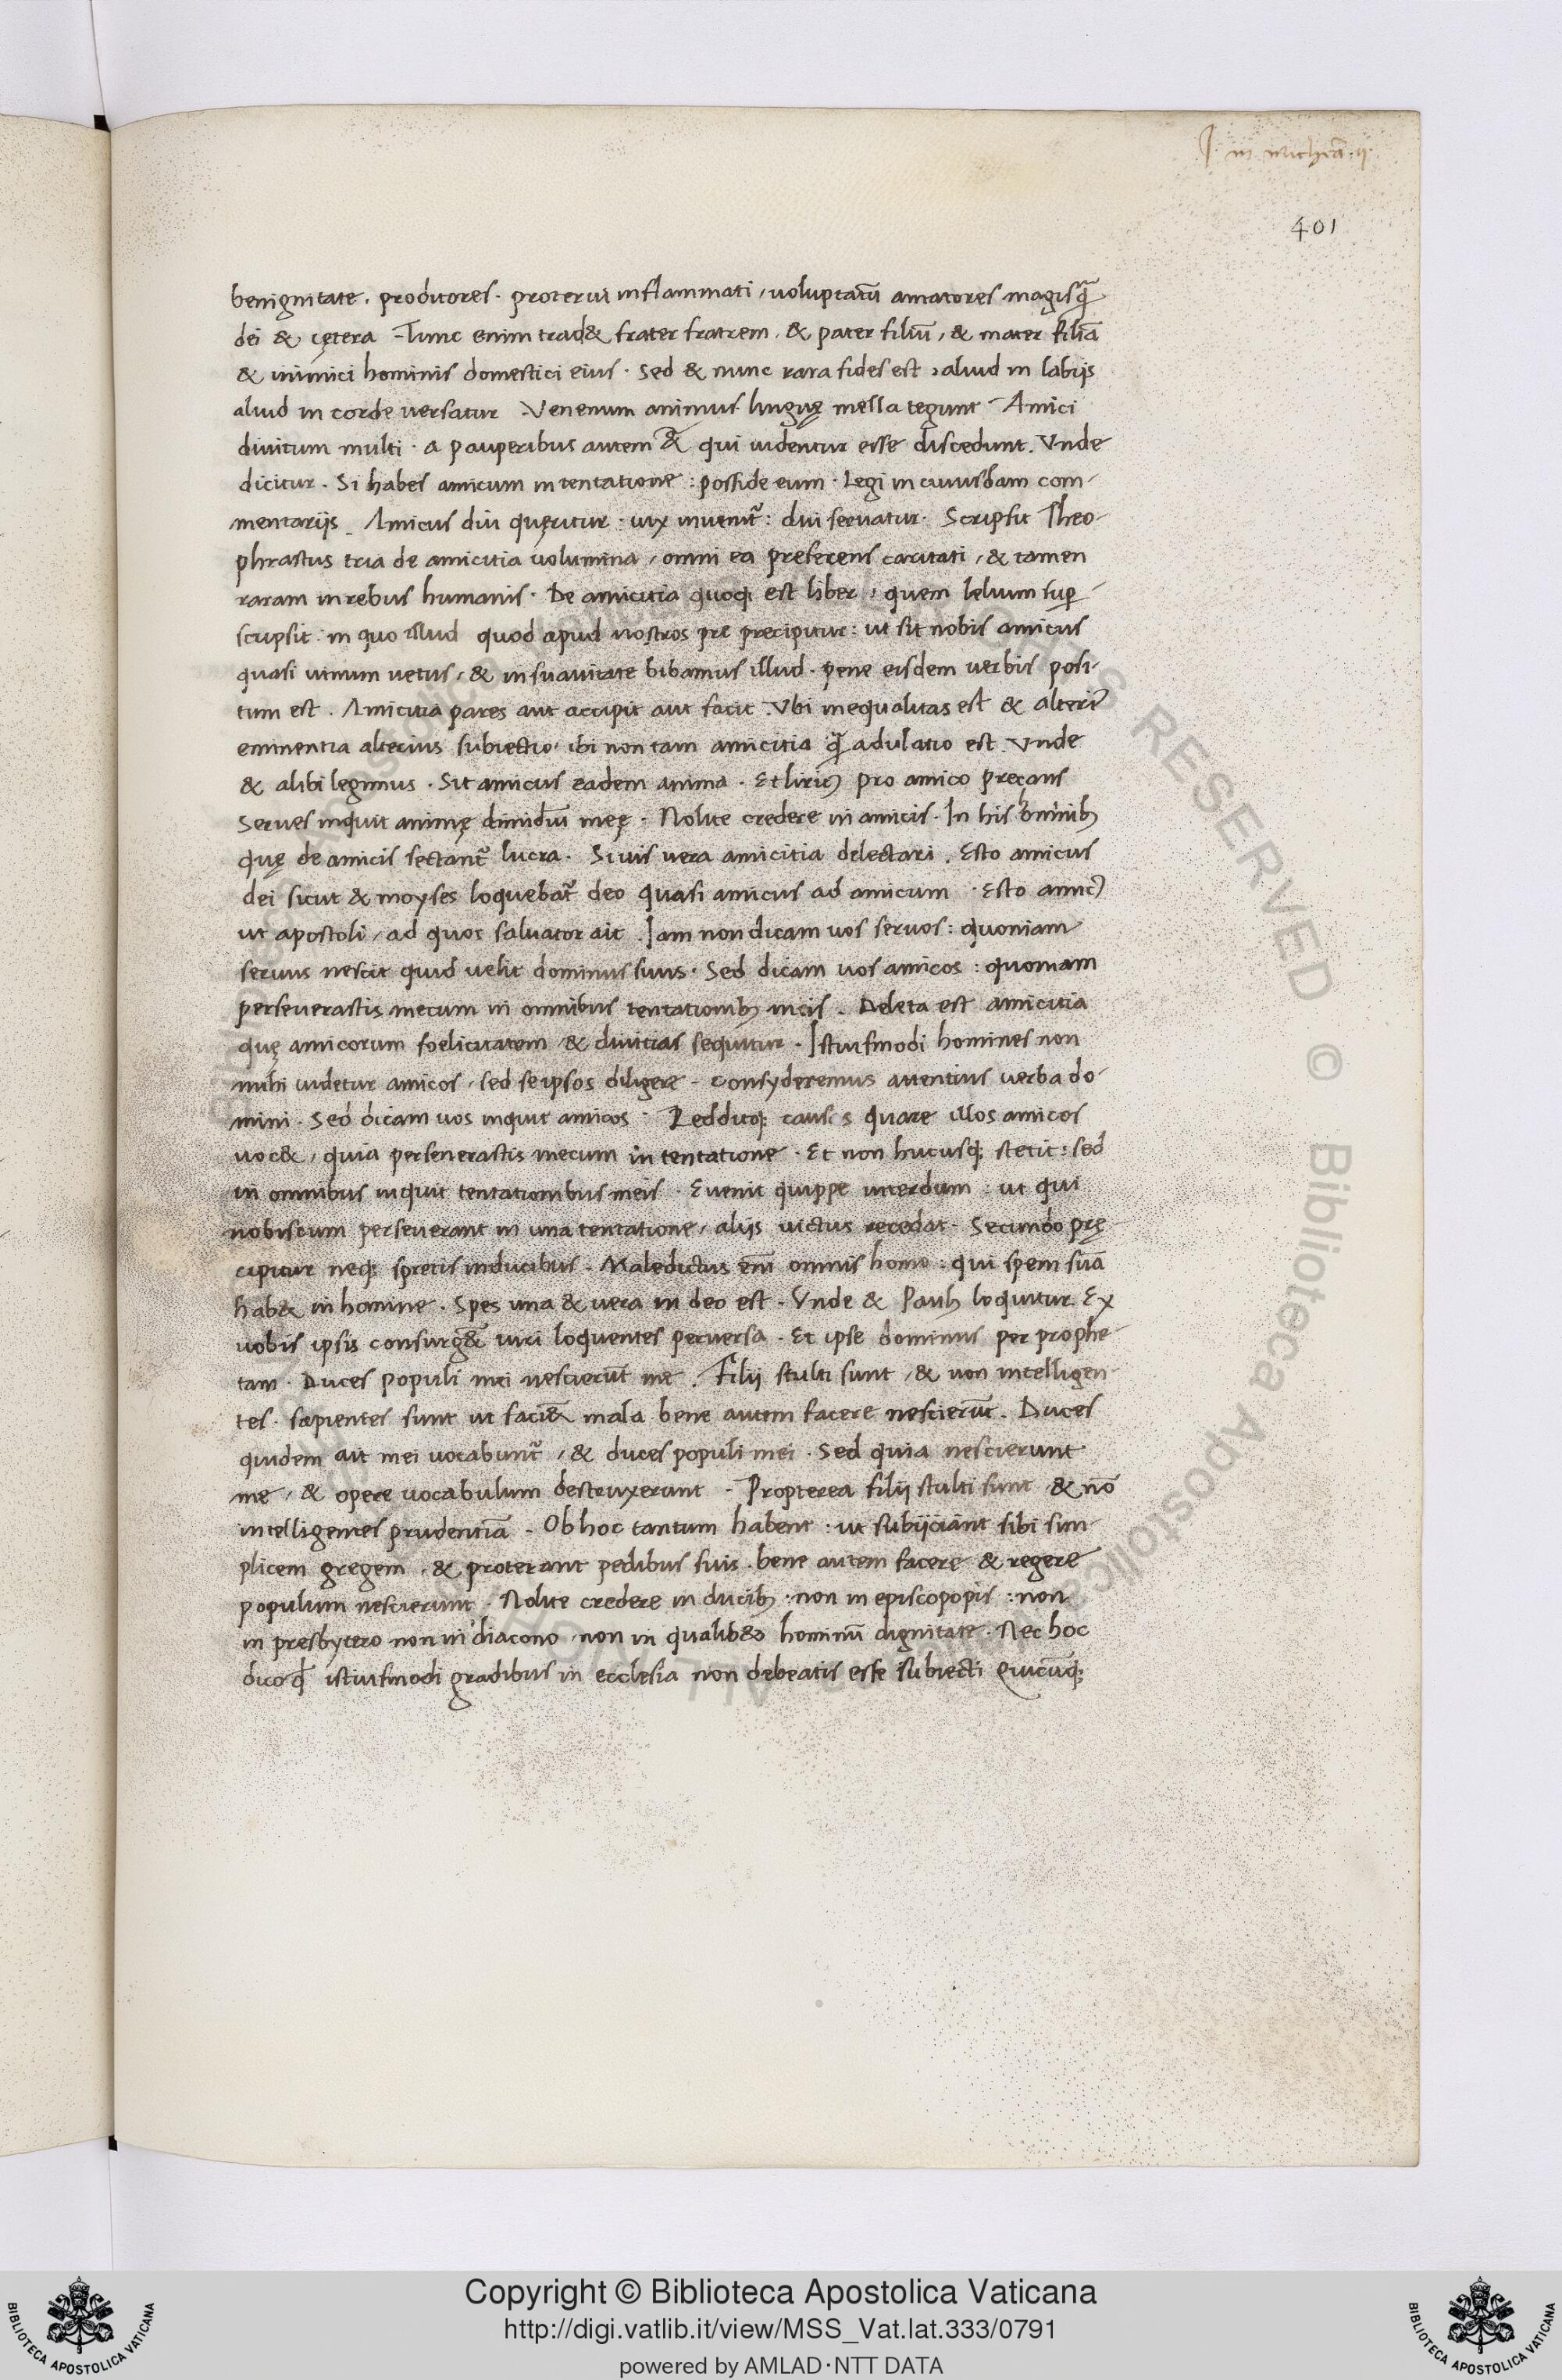 J. in micheā .ij.
401
benignitate . proditores . proterui inflammati , uoluptatū amatores magisq̄
dei & cętera Tunc enim trad& frater fratrem , & pater filiū , & mater filiā
& inimici hominis domestici eius . Sed & nunc rara fides est , aliud in labijs
aliud in corde uersatur . Venenum animus linguę mella tegunt Amici
diuitum multi . a pauperibus autem & qui uidentur esse discedunt . Vnde
dicitur . Si habes amicum in tentatione : posside eum . Legi in cuiusdam com-
mentarijs . Amicus diu quęritur . uix inuenit̄ : diu seruatur . Scripsit Theo-
phrastus tria de amicitia uolumina , omni ea preferens caritati , & tamen
raram in rebus humanis . De amicitia quoq; est liber , quem lelium sup̱
scripsit . in quo illud quod apud nostros pre precipitur : ut sit nobis amicus
quasi uinum uetus , & in suauitate bibamus illud . pene eisdem uerbis posi-
tum est . Amicitia pares aut accipit aut facit . Vbi inequalitas est & alteriꝰ
eminentia alterius subiectio , ibi non tam amicitia q̄ adulatio est . Vnde
& alibi legimus . Sit amicus eadem anima . Et liricꝰ pro amico precans
Serues inquit animę dimidiū meę . Nolite credere in amicis . In his hominibꝫ
quę de amicis sectant̄ lucra . Si uis uera amicitia delectari . Esto amicus
dei sicut & moyses loquebat̄ deo quasi amicus ad amicum . Esto amicꝰ
ut apostoli , ad quos saluator ait . Iam non dicam uos seruos : quoniam
seruus nescit quid uelit dominus suus . Sed dicam uos amicos : quoniam
perseuerastis mecum in omnibus tentationibꝫ meis . Deleta est amicitia
quę amicorum foelicitatem & diuitias sequitur . Istiusmodi homines non
mihi uidetur amicos , sed se ipsos diligere . Consyderemus attentius uerba do-
mini . Sed dicam uos inquit amicos . Redditq; causas quare illos amicos
uoc& , quia perseuerastis mecum in tentatione . Et non hucusq; stetit : sed
in omnibus inquit tentationibus meis . Euenit quippe interdum : ut qui
nobiscum perseuerant in una tentatione , alijs uictus recedat . Secundo prę-
cipitur neq; spretis in ducibus . Maledictus em̄ omnis homo : qui spem suā
hab& in homine . Spes una & uera in deo est . Vnde & Paulꝰ loquitur . Ex
uobis ipsis consurg&̄ uiri loquentes peruersa . Et ipse dominus per prophe-
tam . Duces populi mei nescierūt me . Filij stulti sunt , & non intelligen-
tes . sapientes sunt ut faci&̄ mala bene autem facere nescierūt . Duces
quidem ait mei uocabunt̄ , & duces populi mei . Sed quia nescierunt
me , & opere uocabulum destruxerunt . Propterea filij stulti sunt & nō
intelligentes prudentiā . Ob hoc tantum habent : ut subijciant sibi sim-
plicem gregem , & proterant pedibus suis . bene autem facere & regere
populum nescierunt . Nolite credere in ducibꝫ . non in episcopopis : non
in presbytero non in diacono , non in qualib& hominū dignitate . Nec hoc
dico q̄ istiusmodi gradibus in ecclesia non debeatis esse subiecti Quicūq;
ALL RIGHTS RESERVED © Biblioteca Apostolica
Copyright © Biblioteca Apostolica Vaticana
http://digi.vatlib.it/view/MSS_Vat.lat.333/0791
powered by AMLAD·NTT DATA
BIBLIOTECA APOSTOLICA VATICANA
BIBLIOTECA APOSTOLICA VATICANA